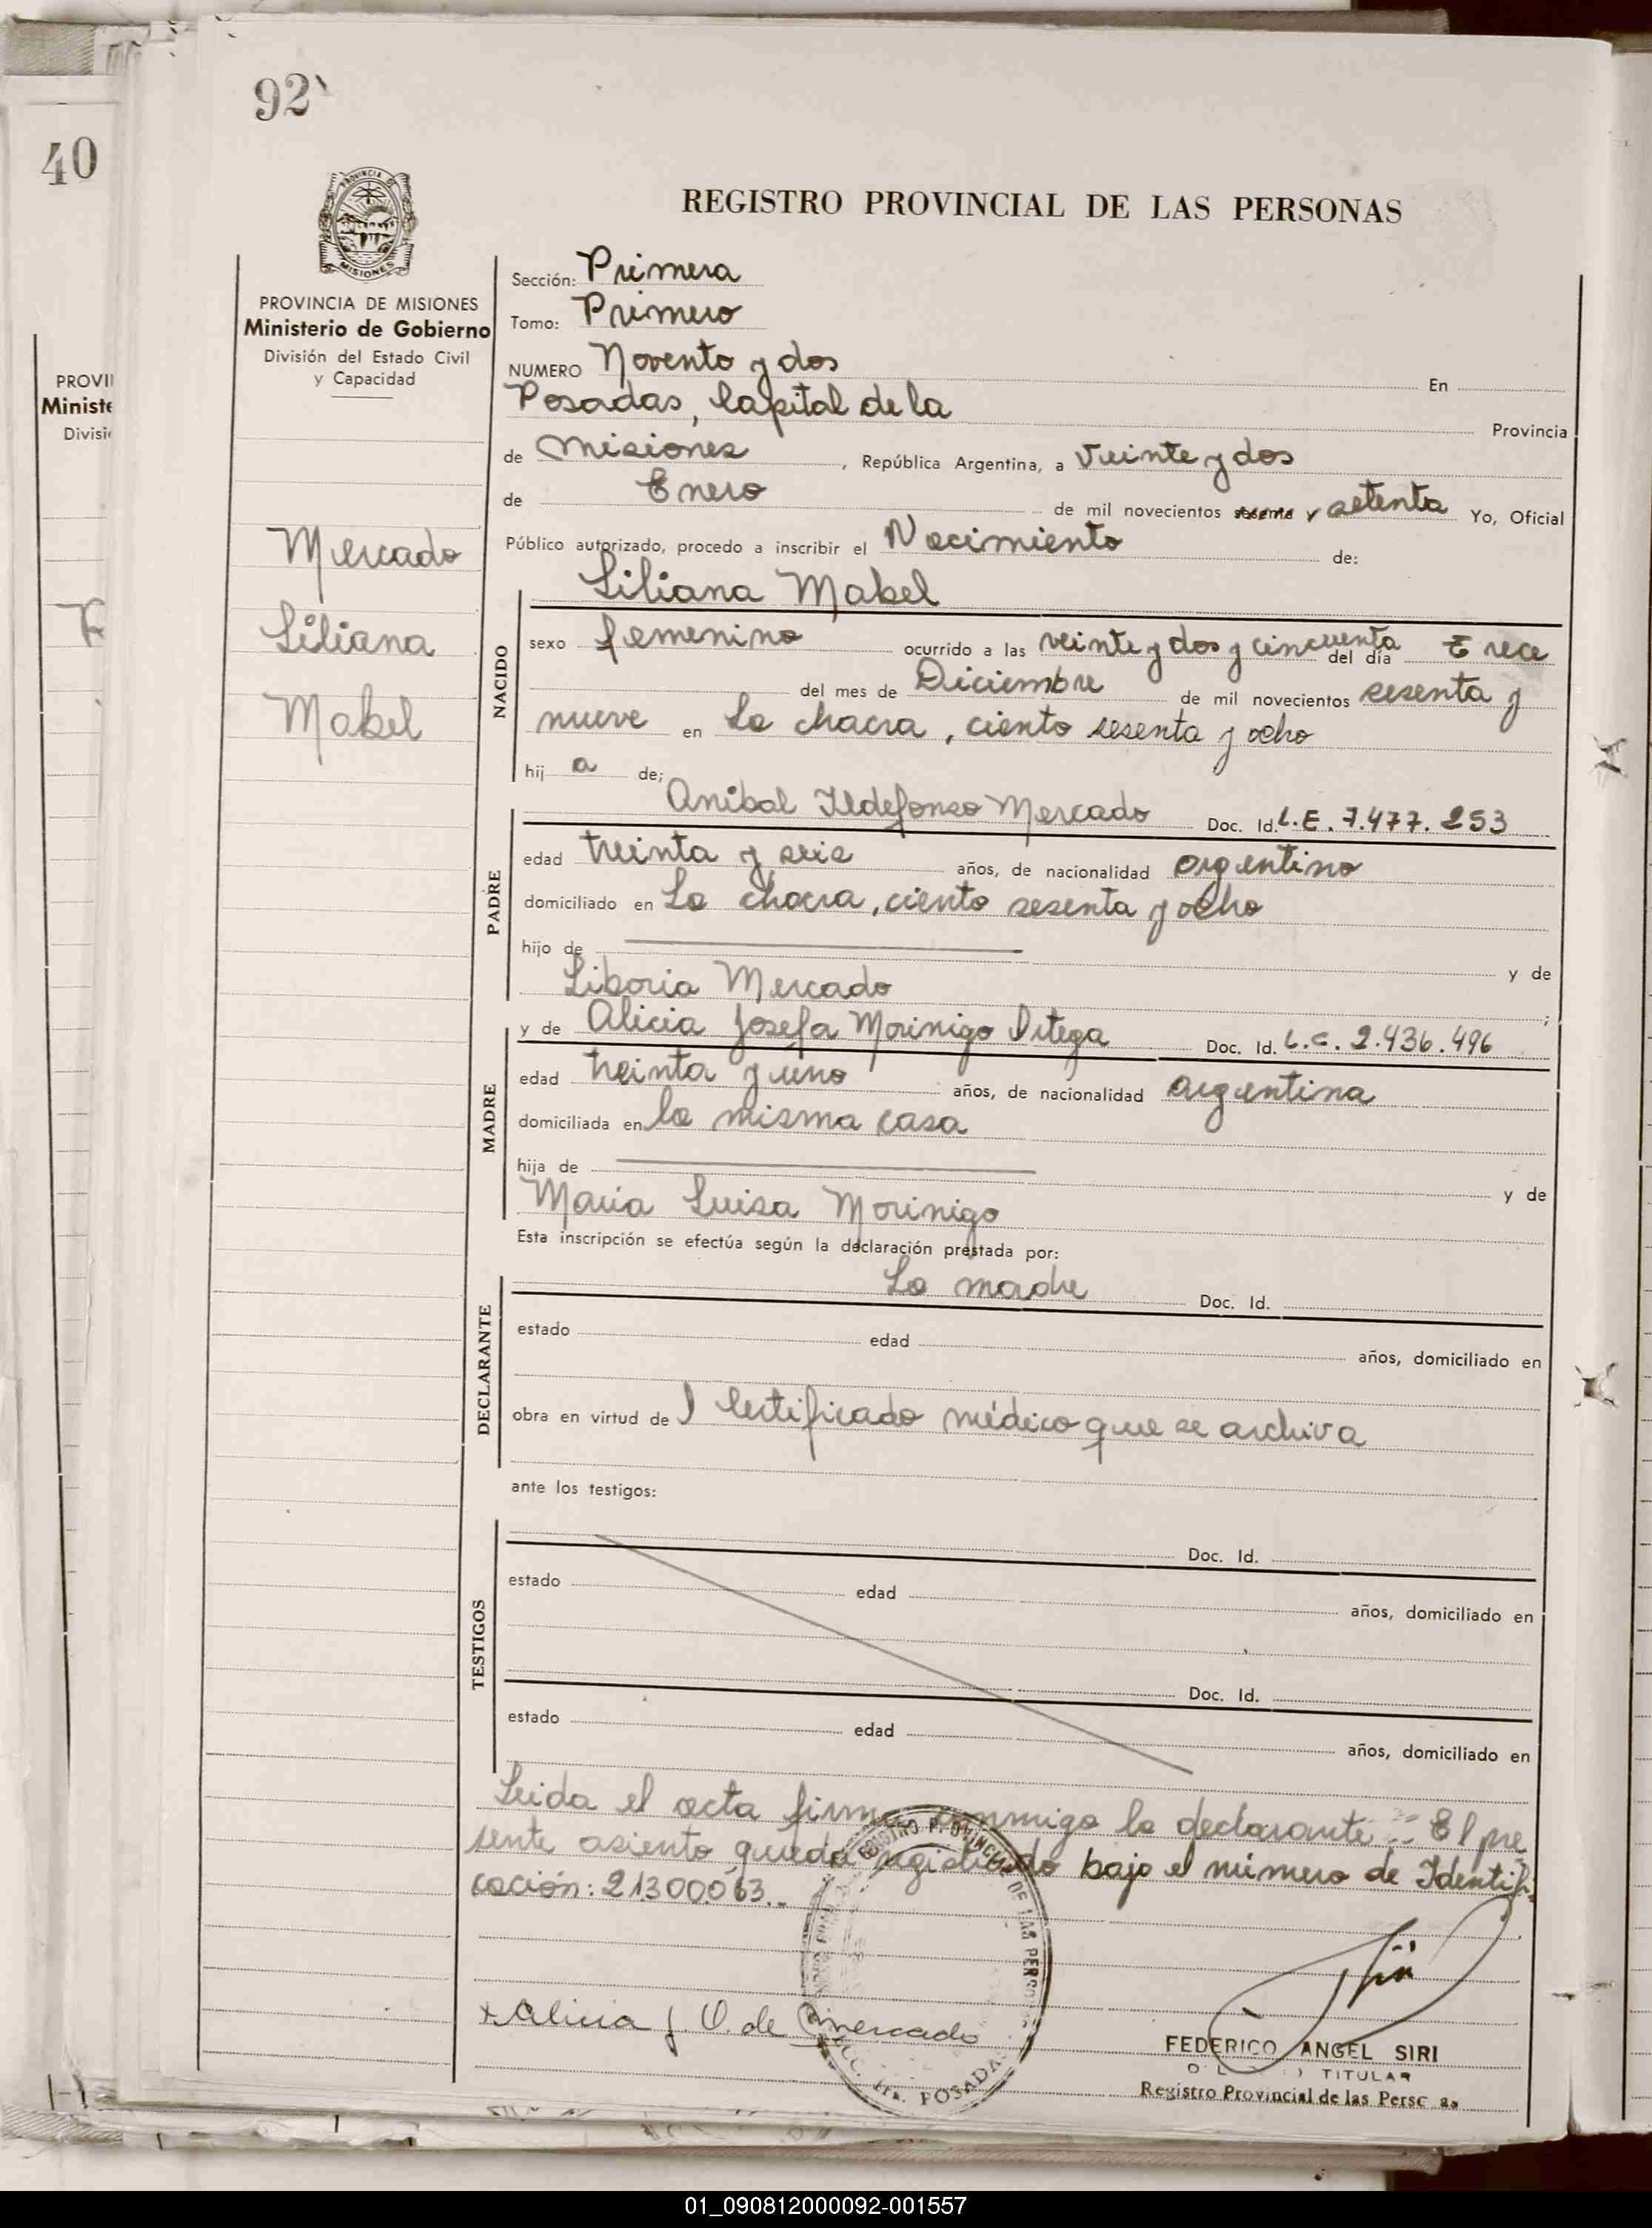 92
40
REGISTRO PROVINCIAL DE LAS PERSONAS
PROVINCIA DE MISIONES
Ministerio de Gobierno
División del Estado Civil
y Capacidad
PROVI
Ministe
Divisi
Mercado
Liliana
Mabel
Sección: Primera
Tomo: Primero
NUMERO Noventa y dos En
Posadas, Capital de la Provincia
de Misiones, República Argentina, a Veinte y dos
de Enero de mil novecientos sesenta y setenta Yo, Oficial
Público autorizado, procedo a inscribir el Nacimiento de:
Liliana Mabel
NACIDO
sexo femenino ocurrido a las veinte y dos y cincuenta del día Trece
del mes de Diciembre de mil novecientos sesenta y
nueve en La chacra, ciento sesenta y ocho
hij a de;
Anibal Ildefonso Mercado Doc. Id. L.E. 7.477.253
PADRE
edad treinta y seis años, de nacionalidad argentino
domiciliado en La chacra, ciento sesenta y ocho
hijo de y de
Liboria Mercado ;
y de Alicia Josefa Morinigo Ortega Doc. Id. L.C. 2.436.496
MADRE
edad treinta y uno años, de nacionalidad argentina
domiciliada en la misma casa
hija de y de
Maria Luisa Morinigo
Esta inscripción se efectúa según la declaración prestada por:
La madre Doc. Id.
DECLARANTE
estado edad años, domiciliado en
obra en virtud de l Certificado médico que se archiva
ante los testigos:
TESTIGOS
Doc. Id.
estado edad años, domiciliado en
Doc. Id.
estado edad años, domiciliado en
Leida el acta firma conmigo la declarante.- El pre
sente asiento queda registrado bajo el número de Identifi
cación: 21300063..
Alicia J. O. de Mercado
FEDERICO ANGEL SIRI
TITULAR
Registro Provincial de las Personas
01_090812000092-001557